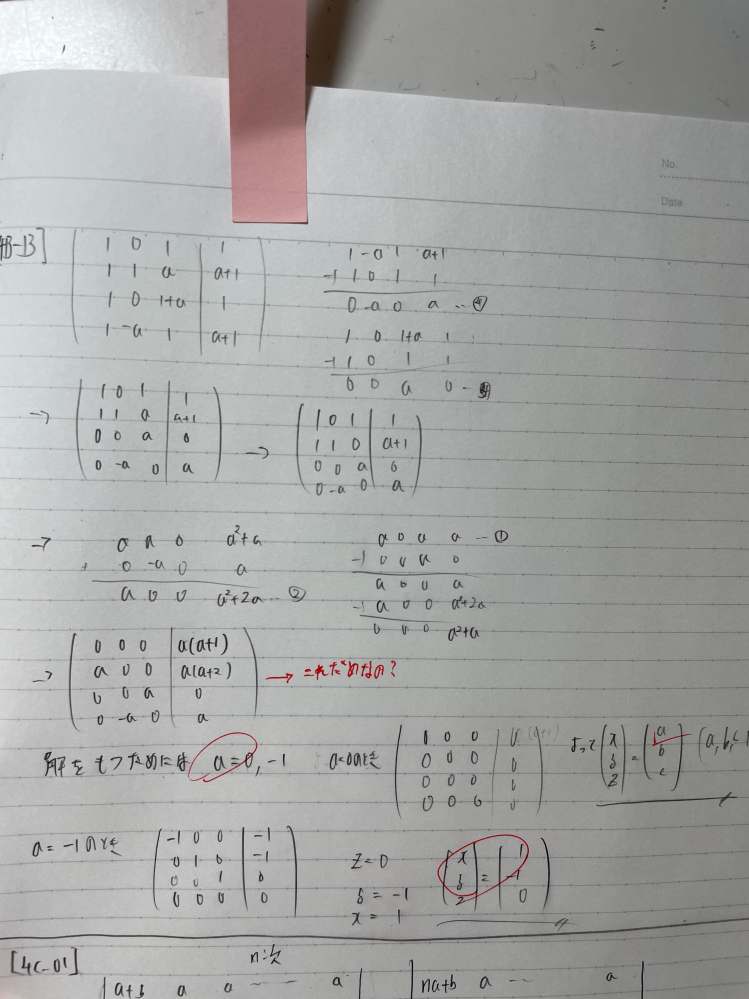 No.
Date
4B-13]
1 0 1 | 1
1 1 a | a+1
1 0 1+a | 1
1 -a 1 | a+1
1 -a 1 a+1
-) 1 0 1 1
0 -a 0 a … ④
1 0 1+a 1
-) 1 0 1 1
0 0 a 0 …
→
1 0 1 | 1
1 1 a | a+1
0 0 a | 0
0 -a 0 | a
→
1 0 1 | 1
1 1 0 | a+1
0 0 a | 0
0 -a 0 | a
→
a a 0 a²+a
+ 0 -a 0 a
a 0 0 a²+2a … ②
a 0 a a … ①
-) 0 0 a 0
a 0 0 a
-) a 0 0 a²+2a
0 0 0 a²+a
→
0 0 0 | a(a+1)
a 0 0 | a(a+2)
0 0 a | 0
0 -a 0 | a
→ これだめなの?
解をもつためには a=0, -1
a=0のとき
0 0 0 | 0
0 0 0 | 0
0 0 0 | 0
0 0 0 | 0
よって (x y z) = (a b c) (a, b, c
a = -1のとき
-1 0 0 | -1
0 1 0 | -1
0 0 1 | 0
0 0 0 | 0
z = 0
y = -1
x = 1
(x y z) = (1 -1 0)
[4C-01]
n次
a+b a a … a
na+b a … a